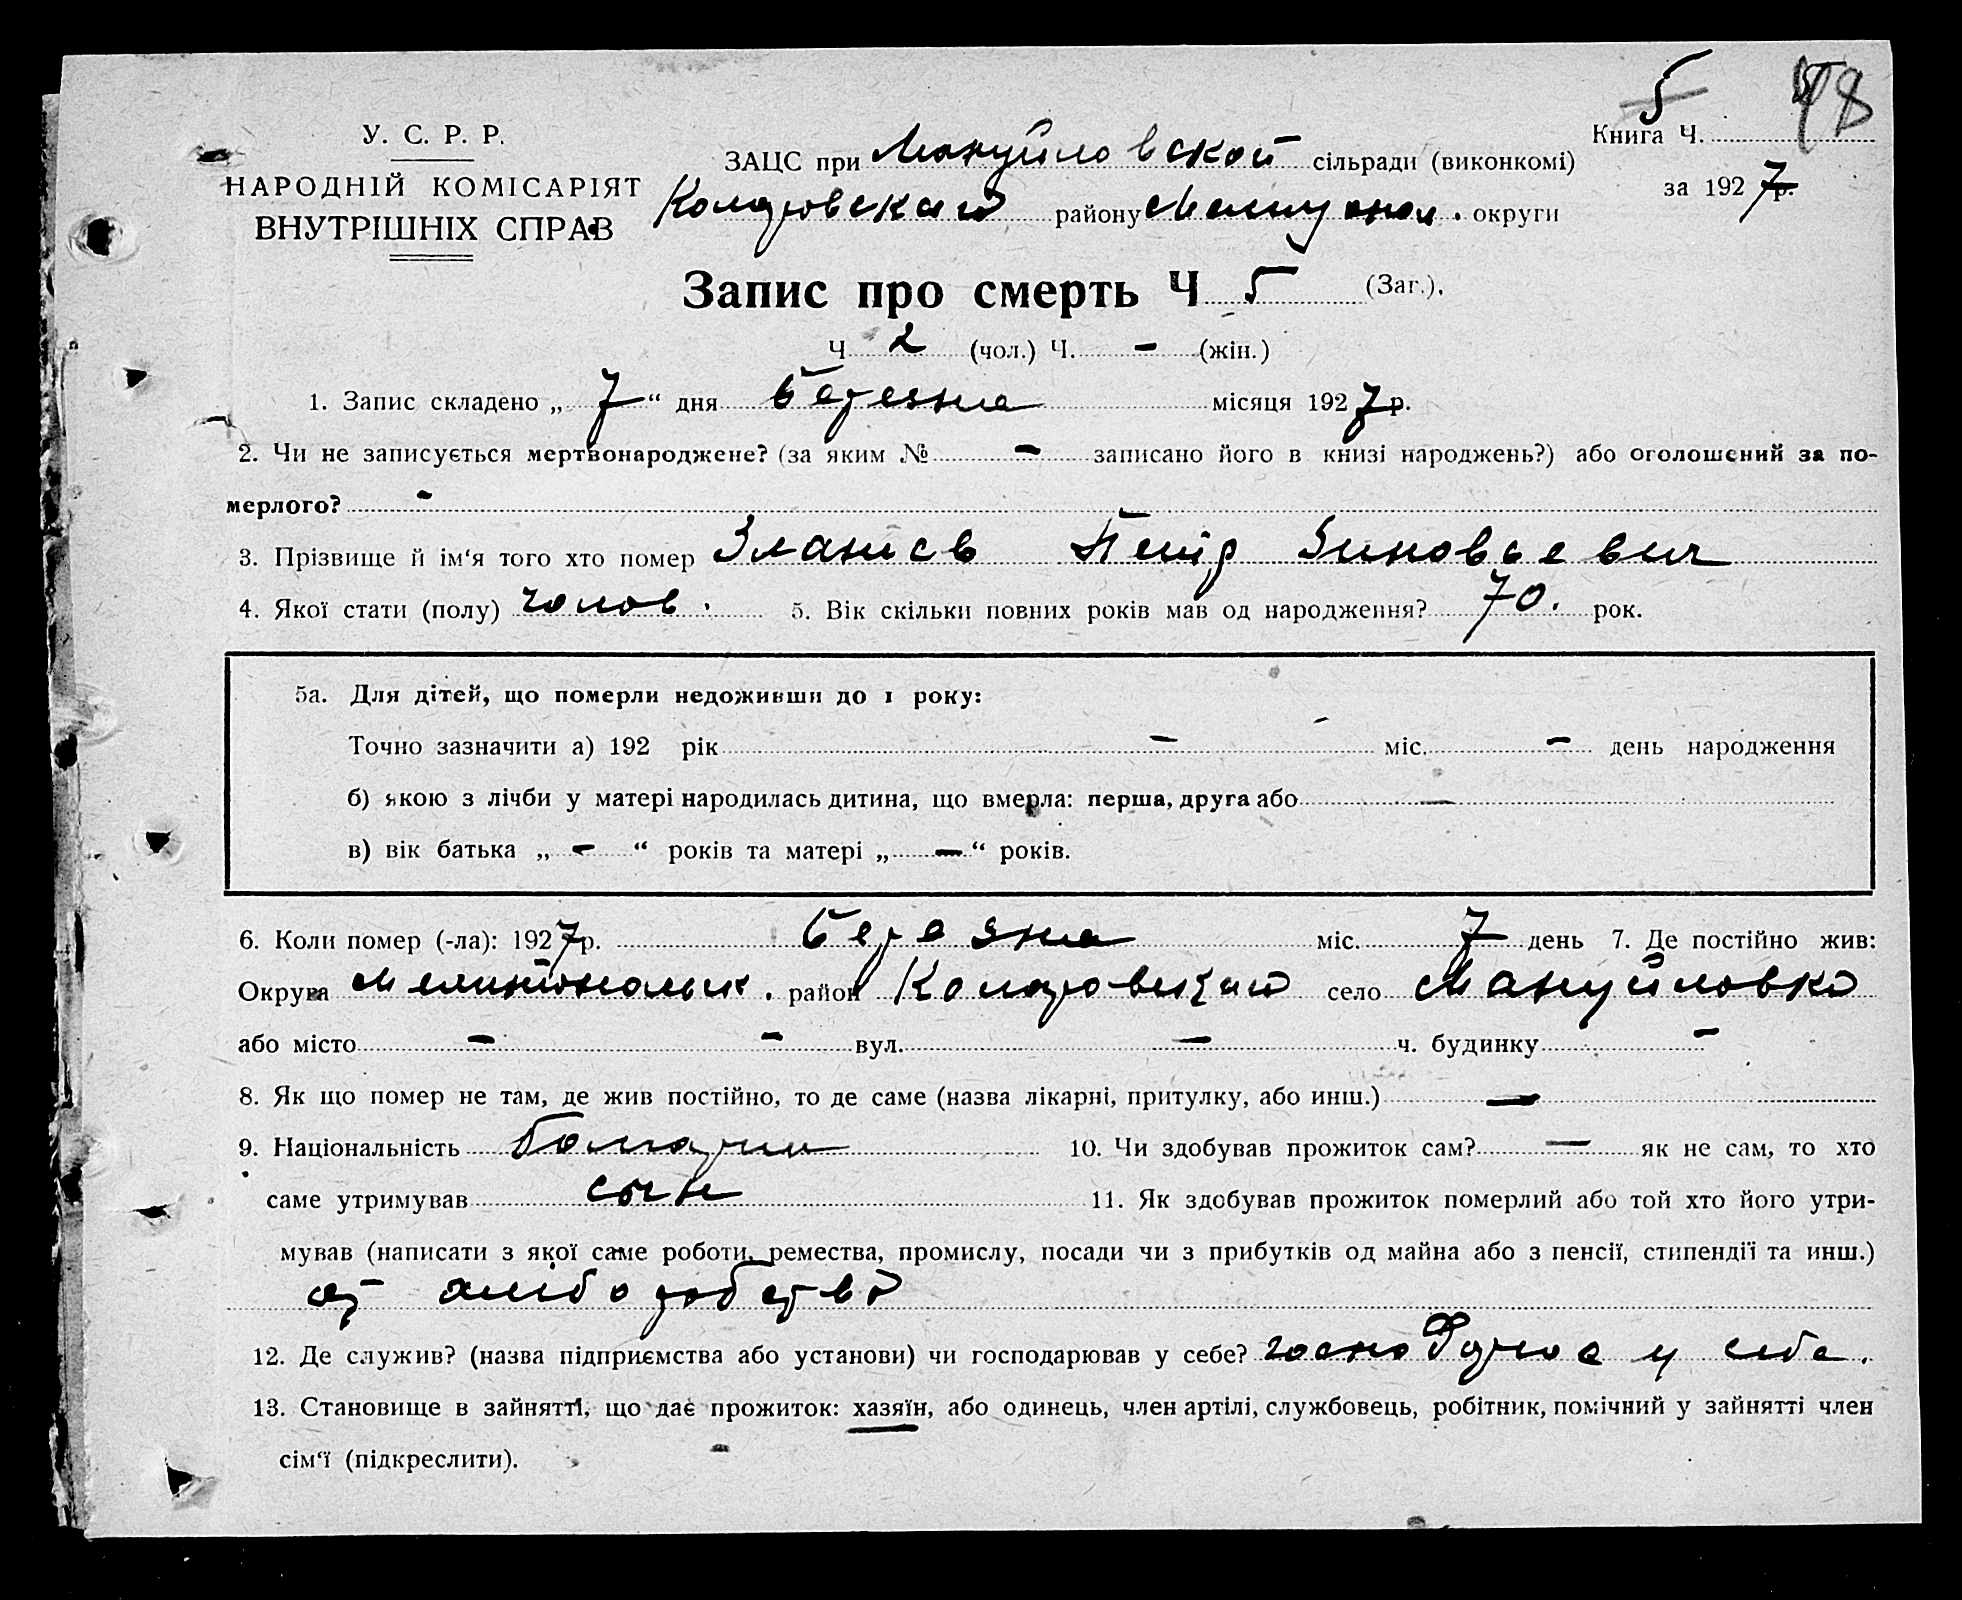 5 98
У. С. Р. Р.
Книга Ч.
ЗАЦС при Мануйловской сільради (виконкомі)
НАРОДНІЙ КОМІСАРІЯТ
за 1927 р.
ВНУТРІШНІХ СПРАВ
Коларовскаго району Мелитопол. округи
Запис про смерть Ч 5 (Заг.).
Ч 2 (чол.) Ч. - (жін.)
1. Запис складено „ 7 “ дня березня місяця 1927 р.
2. Чи не записується мертвонароджене? (за яким № - записано його в книзі народжень?) або оголошений за по-
мерлого? -
3. Прізвище й ім‘я того хто помер Златиєв Петр Зиновьевич
4. Якої стати (полу) чолов. 5. Вік скільки повних років мав од народження? 70. рок.
5а. Для дітей, що померли недоживши до 1 року:
Точно зазначити а) 192 рік - міс. - день народження
б) якою з лічби у матері народилась дитина, що вмерла: перша, друга або -
в) вік батька „ - “ років та матері „ - “ років.
6. Коли помер (-ла): 1927 р. березня міс. 7 день 7. Де постійно жив:
Округа Мелитопольск. район Коларовский село Мануйловка
або місто - - вул. - ч. будинку -
8. Як що помер не там, де жив постійно, то де саме (назва лікарні, притулку, або инш.) -
9. Національність болгарин 10. Чи здобував прожиток сам? - як не сам, то хто
саме утримував сын 11. Як здобував прожиток померлий або той хто його утри-
мував (написати з якої саме роботи, ремества, промислу, посади чи з прибутків од майна або з пенсії, стипендії та инш.)
от хліборобства
12. Де служив? (назва підприємства або установи) чи господарював у себе? у себе.
13. Становище в зайнятті, що дає прожиток: хазяїн, або одинець, член артілі, службовець, робітник, помічний у зайнятті член
сім‘ї (підкреслити). -